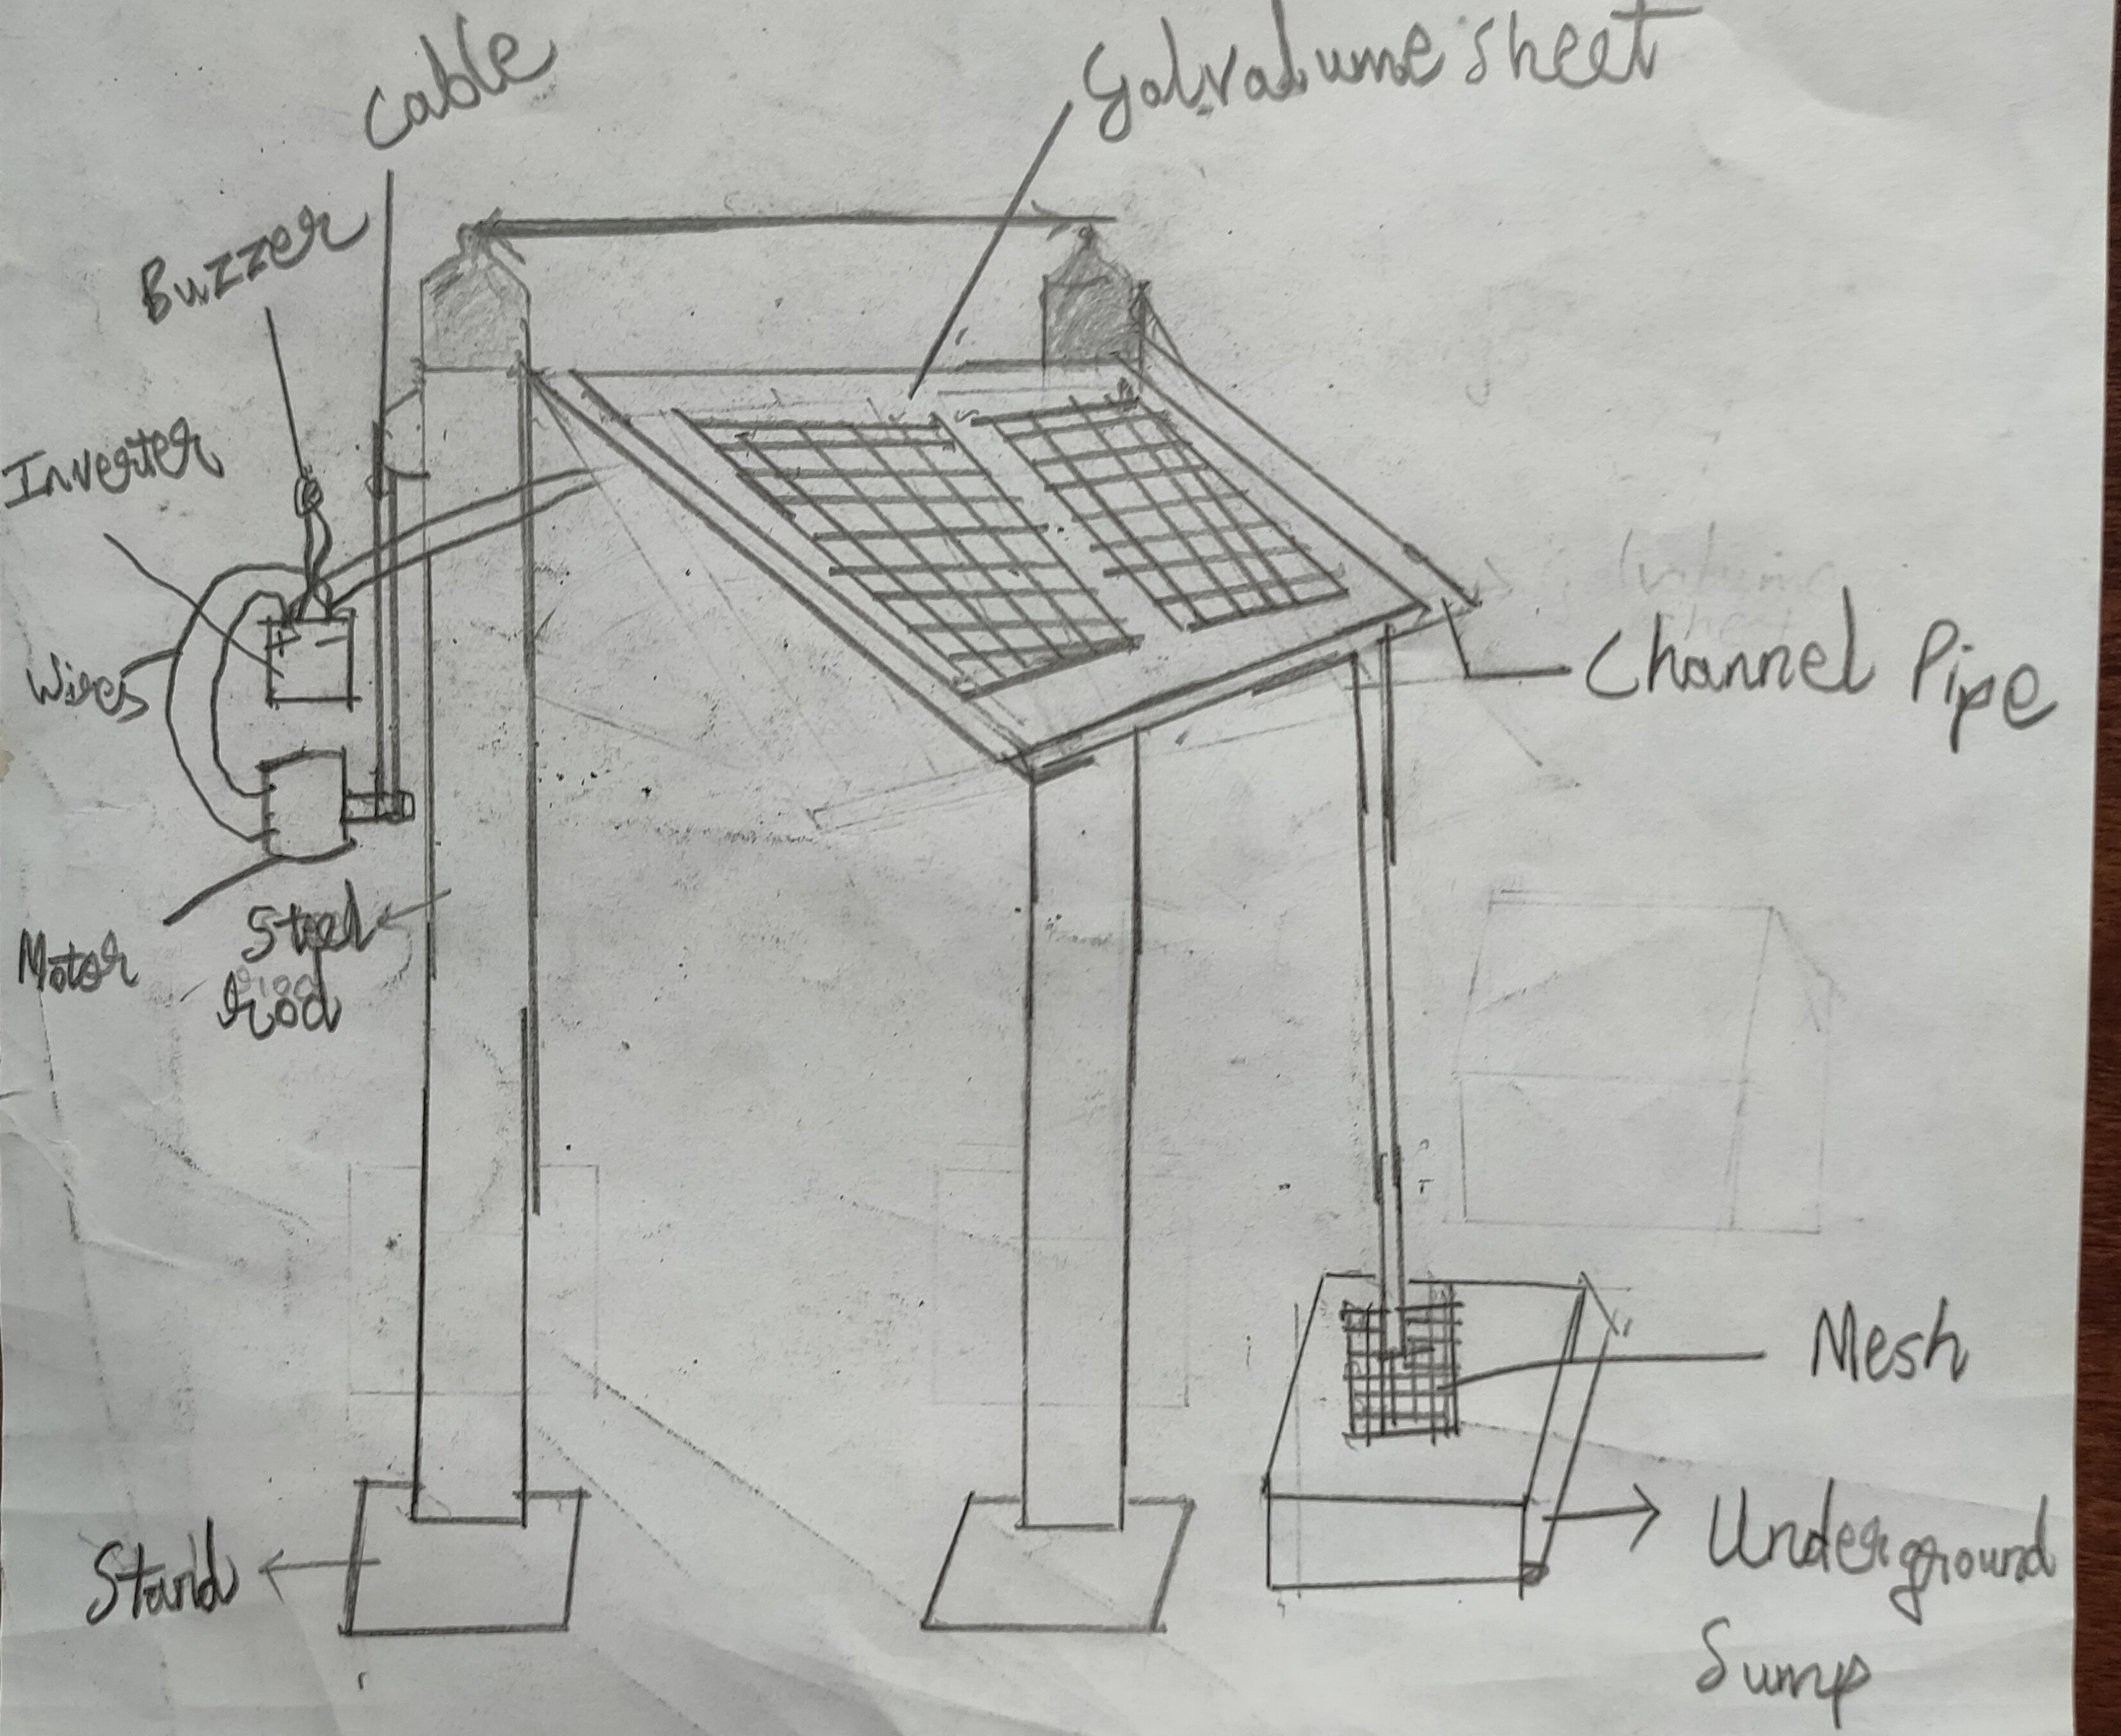 Cable
Galvalume sheet
Buzzer
Inverter
Wires
Channel Pipe
Motor
Steel
rod
Mesh
Stand
Underground
Sump